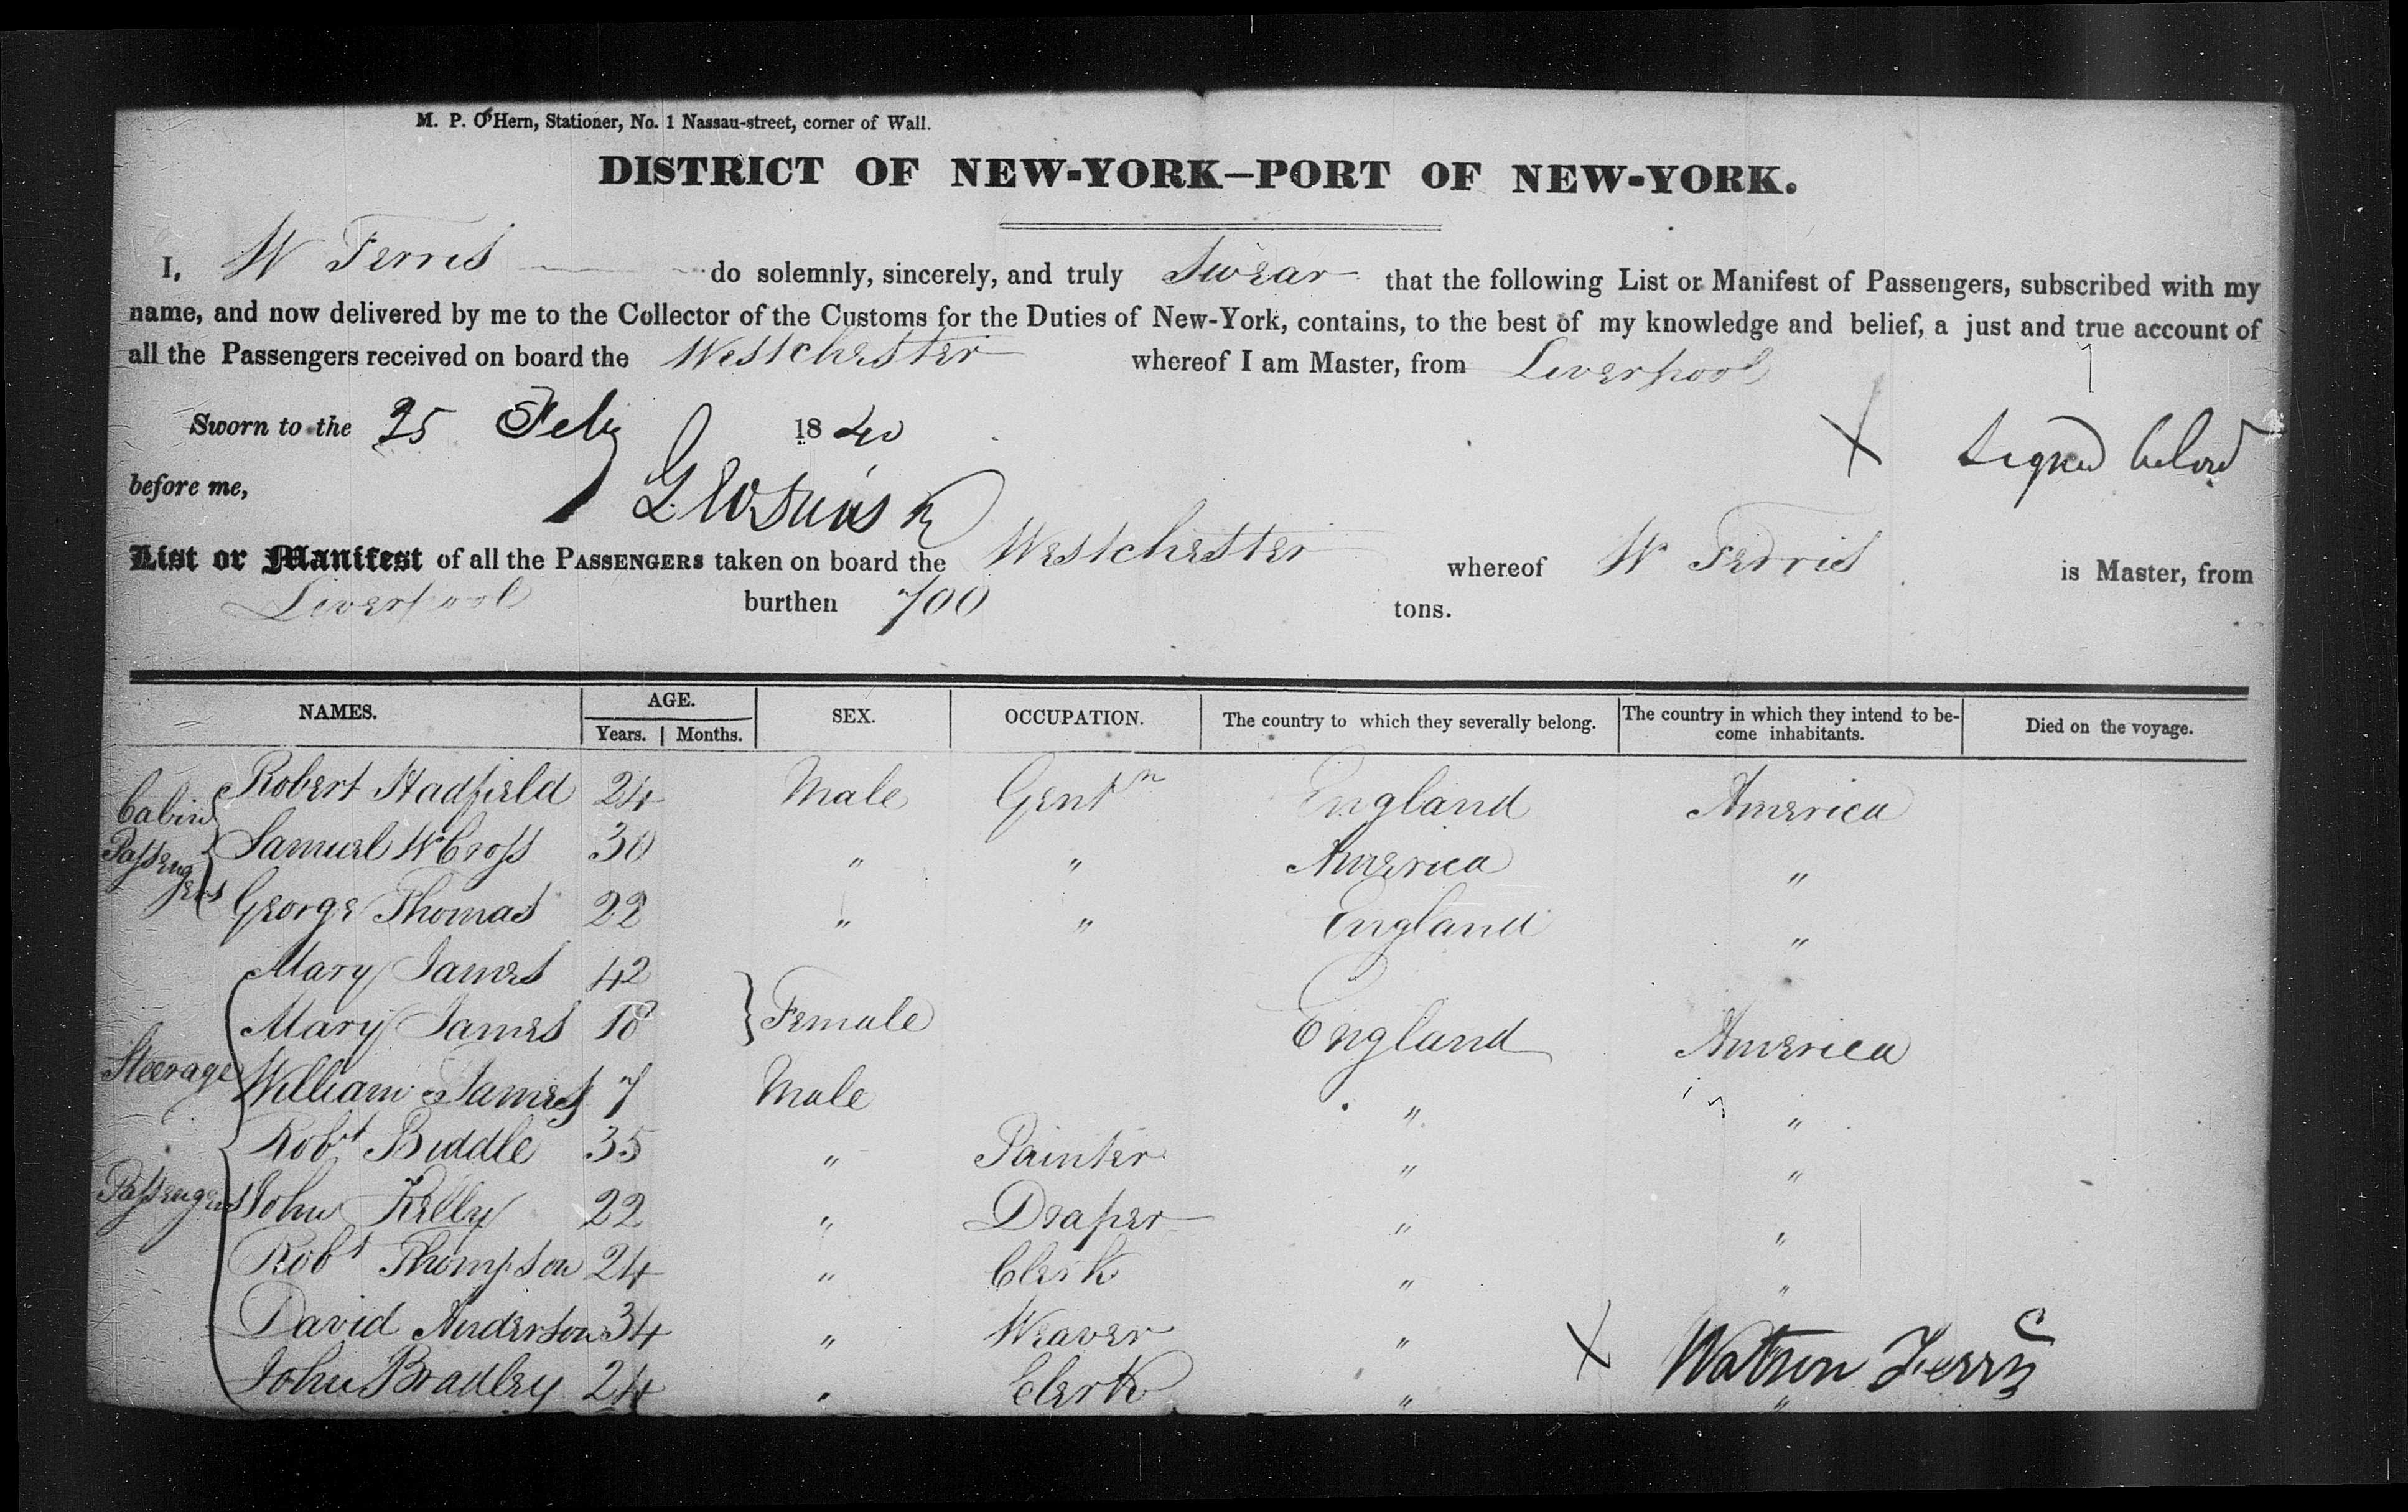 M. P. O'Hern, Stationer, No. 1 Nassau-street, corner of Wall.
DISTRICT OF NEW-YORK—PORT OF NEW-YORK.
I, W Ferris do solemnly, sincerely, and truly Swear that the following List or Manifest of Passengers, subscribed with my
name, and now delivered by me to the Collector of the Customs for the Duties of New-York, contains, to the best of my knowledge and belief, a just and true account of
all the Passengers received on board the Westchester whereof I am Master, from Liverpool
Sworn to the 25 Feby 1840 X Signed below
before me,
List or Manifest of all the PASSENGERS taken on board the Westchester whereof W Ferris is Master, from
Liverpool burthen 700 tons.
NAMES. AGE. Years. Months. SEX. OCCUPATION. The country to which they severally belong. The country in which they intend to become inhabitants. Died on the voyage.
Cabin Passengers
Robert Hadfield 24 Male Gentn England America
Samuel W Cross 30 " " America "
George Thomas 22 " " England "
Steerage Passengers
Mary James 42
Mary James 18 Female England America
William James 7 Male " "
Robt Biddle 35 " Painter " "
John Kelly 22 " Draper " "
Robt Thompson 24 " Clerk " "
David Anderson 34 " Weaver "
X Watson Ferris
John Bradley 24 " Clerk " "